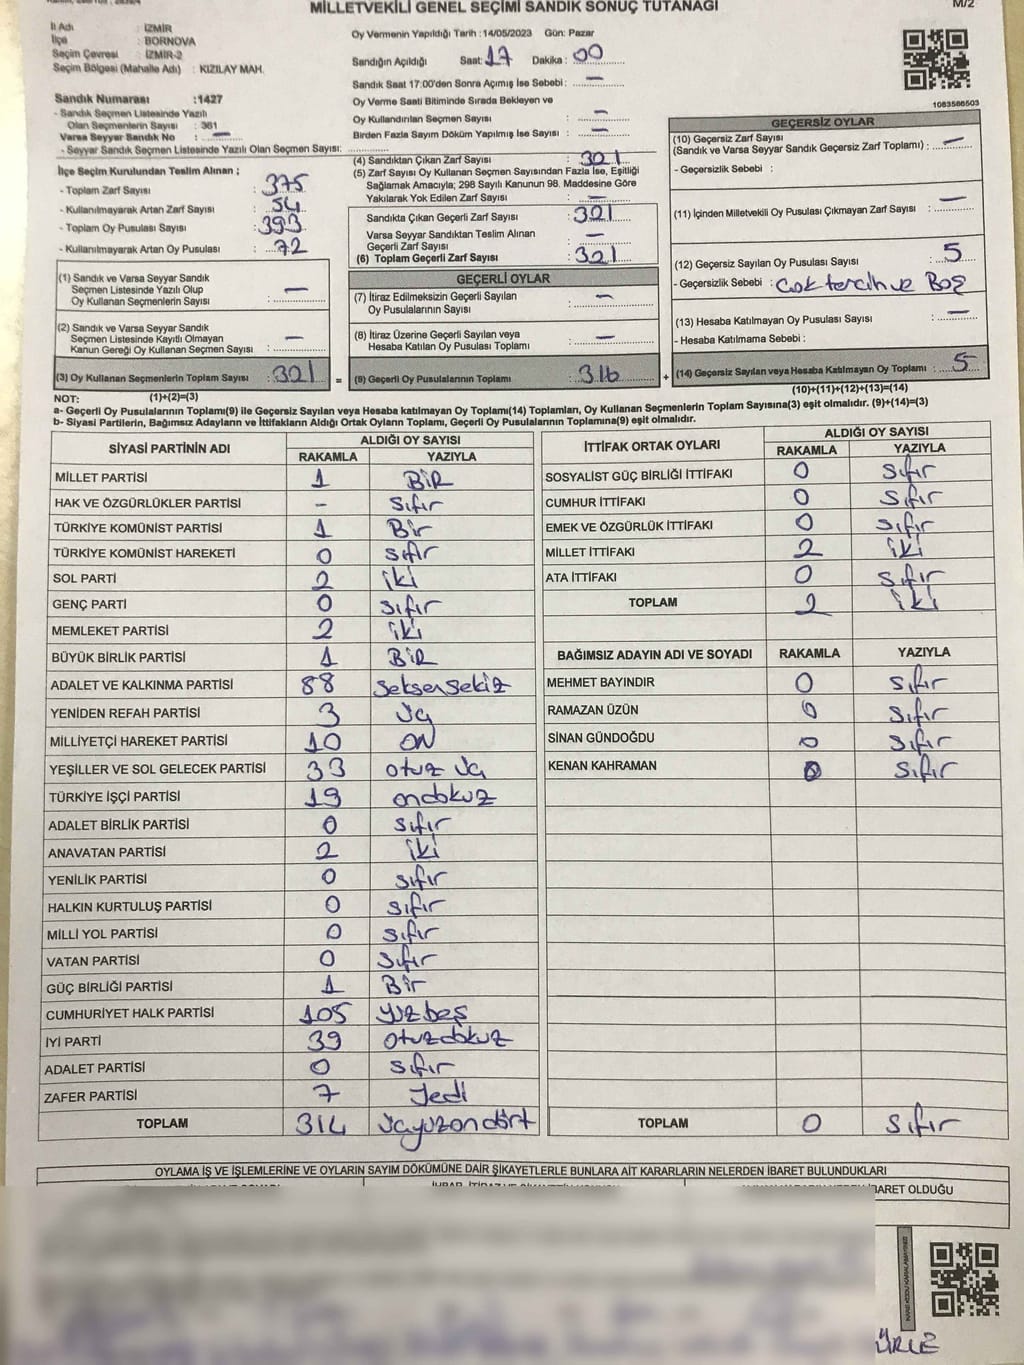 MİLLETVEKİLİ GENEL SEÇİMİ SANDIK SONUÇ TUTANAĞI
M/2
İl Adı : İZMİR
İlçe : BORNOVA
Seçim Çevresi : İZMİR-2
Seçim Bölgesi (Mahalle Adı) : KIZILAY MAH.
Oy Vermenin Yapıldığı Tarih : 14/05/2023 Gün: Pazar
Sandığın Açıldığı Saat: 17 Dakika : 00
Sandık Saat 17:00'den Sonra Açımış İse Sebebi : —
Oy Verme Saati Bitiminde Sırada Bekleyen ve
Oy Kullandırılan Seçmen Sayısı : —
Birden Fazla Sayım Döküm Yapılmış İse Sayısı : —
1083586503
Sandık Numarası :1427
- Sandık Seçmen Listesinde Yazılı
Olan Seçmenlerin Sayısı : 361
Varsa Seyyar Sandık No : —
- Seyyar Sandık Seçmen Listesinde Yazılı Olan Seçmen Sayısı:
İlçe Seçim Kurulundan Teslim Alınan ;
- Toplam Zarf Sayısı : 375
- Kullanılmayarak Artan Zarf Sayısı : 54
- Toplam Oy Pusulası Sayısı : 393
- Kullanılmayarak Artan Oy Pusulası : 72
(1) Sandık ve Varsa Seyyar Sandık
Seçmen Listesinde Yazılı Olup
Oy Kullanan Seçmenlerin Sayısı : —
(2) Sandık ve Varsa Seyyar Sandık
Seçmen Listesinde Kayıtlı Olmayan
Kanun Gereği Oy Kullanan Seçmen Sayısı : —
(3) Oy Kullanan Seçmenlerin Toplam Sayısı : 321 =
(4) Sandıktan Çıkan Zarf Sayısı : 321
(5) Zarf Sayısı Oy Kullanan Seçmen Sayısından Fazla İse, Eşitliği
Sağlamak Amacıyla; 298 Sayılı Kanunun 98. Maddesine Göre
Yakılarak Yok Edilen Zarf Sayısı : —
Sandıkta Çıkan Geçerli Zarf Sayısı : 321
Varsa Seyyar Sandıktan Teslim Alınan
Geçerli Zarf Sayısı : —
(6) Toplam Geçerli Zarf Sayısı : 321
GEÇERLİ OYLAR
(7) İtiraz Edilmeksizin Geçerli Sayılan
Oy Pusulalarının Sayısı : —
(8) İtiraz Üzerine Geçerli Sayılan veya
Hesaba Katılan Oy Pusulası Toplamı : —
(9) Geçerli Oy Pusulalarının Toplamı : 316 +
GEÇERSİZ OYLAR
(10) Geçersiz Zarf Sayısı
(Sandık ve Varsa Seyyar Sandık Geçersiz Zarf Toplamı) : —
- Geçersizlik Sebebi :
(11) İçinden Milletvekili Oy Pusulası Çıkmayan Zarf Sayısı : —
(12) Geçersiz Sayılan Oy Pusulası Sayısı : 5
- Geçersizlik Sebebi : Çok tercih ve Boş
(13) Hesaba Katılmayan Oy Pusulası Sayısı : —
- Hesaba Katılmama Sebebi :
(14) Geçersiz Sayılan veya Hesaba Katılmayan Oy Toplamı : 5
NOT: (1)+(2)=(3) (10)+(11)+(12)+(13)=(14)
a- Geçerli Oy Pusulalarının Toplamı(9) ile Geçersiz Sayılan veya Hesaba katılmayan Oy Toplamı(14) Toplamları, Oy Kullanan Seçmenlerin Toplam Sayısına(3) eşit olmalıdır. (9)+(14)=(3)
b- Siyasi Partilerin, Bağımsız Adayların ve İttifakların Aldığı Ortak Oyların Toplamı, Geçerli Oy Pusulalarının Toplamına(9) eşit olmalıdır.
SİYASİ PARTİNİN ADI ALDIĞI OY SAYISI
RAKAMLA YAZIYLA
MİLLET PARTİSİ 1 BİR
HAK VE ÖZGÜRLÜKLER PARTİSİ — sıfır
TÜRKİYE KOMÜNİST PARTİSİ 1 Bir
TÜRKİYE KOMÜNİST HAREKETİ 0 sıfır
SOL PARTİ 2 iki
GENÇ PARTİ 0 sıfır
MEMLEKET PARTİSİ 2 iki
BÜYÜK BİRLİK PARTİSİ 1 BİR
ADALET VE KALKINMA PARTİSİ 88 seksensekiz
YENİDEN REFAH PARTİSİ 3 üç
MİLLİYETÇİ HAREKET PARTİSİ 10 ON
YEŞİLLER VE SOL GELECEK PARTİSİ 33 otuz üç
TÜRKİYE İŞÇİ PARTİSİ 19 ondokuz
ADALET BİRLİK PARTİSİ 0 sıfır
ANAVATAN PARTİSİ 2 iki
YENİLİK PARTİSİ 0 sıfır
HALKIN KURTULUŞ PARTİSİ 0 sıfır
MİLLİ YOL PARTİSİ 0 sıfır
VATAN PARTİSİ 0 sıfır
GÜÇ BİRLİĞİ PARTİSİ 1 Bir
CUMHURİYET HALK PARTİSİ 105 yüzbeş
İYİ PARTİ 39 otuzdokuz
ADALET PARTİSİ 0 sıfır
ZAFER PARTİSİ 7 Yedi
TOPLAM 314 üçyüzondört
İTTİFAK ORTAK OYLARI ALDIĞI OY SAYISI
RAKAMLA YAZIYLA
SOSYALİST GÜÇ BİRLİĞİ İTTİFAKI 0 sıfır
CUMHUR İTTİFAKI 0 sıfır
EMEK VE ÖZGÜRLÜK İTTİFAKI 0 sıfır
MİLLET İTTİFAKI 2 iki
ATA İTTİFAKI 0 sıfır
TOPLAM 2 iki
BAĞIMSIZ ADAYIN ADI VE SOYADI RAKAMLA YAZIYLA
MEHMET BAYINDIR 0 sıfır
RAMAZAN ÜZÜN 0 sıfır
SİNAN GÜNDOĞDU 0 sıfır
KENAN KAHRAMAN 0 sıfır
TOPLAM 0 sıfır
OYLAMA İŞ VE İŞLEMLERİNE VE OYLARIN SAYIM DÖKÜMÜNE DAİR ŞİKAYETLERLE BUNLARA AİT KARARLARIN NELERDEN İBARET BULUNDUKLARI
İBARET OLDUĞU